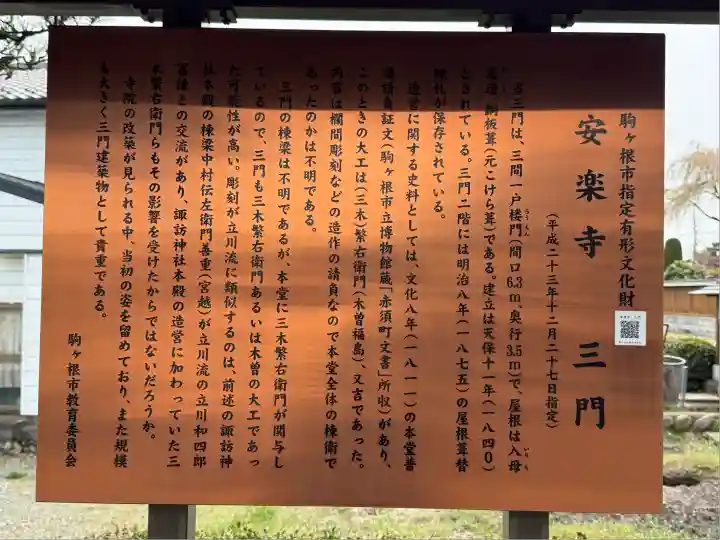 駒ヶ根市指定有形文化財
安楽寺 三門
(平成二十三年十二月二十七日指定)
当三門は、三間一戸楼門(間口6.3m、奥行3.5m)で、屋根は入母
屋造 銅板葺(元こけら葺)である。建立は天保十一年(一八四〇)
とされている。三門二階には明治八年(一八七五)の屋根葺替
棟札が保存されている。
造営に関する史料としては、文化八年(一八一一)の本堂普
請請負証文(駒ヶ根市立博物館蔵「赤須町文書」所収)があり、
このときの大工は(三木)繁右衛門(木曽福島)、又吉であった。
内容は欄間彫刻などの造作の請負なので本堂全体の棟衛で
あったのかは不明である。
三門の棟梁は不明であるが、本堂に三木繁右衛門が関与し
ているので、三門も三木繁右衛門あるいは木曽の大工であっ
た可能性が高い。彫刻が立川流に類似するのは、前述の諏訪神
社本殿の棟梁中村伝左衛門善重(宮越)が立川流の立川和四郎
冨棟との交流があり、諏訪神社本殿の造営に加わっていた三
木繁右衛門らもその影響を受けたからではないだろうか。
寺院の改築が見られる中、当初の姿を留めており、また規模
も大きく三門建築物として貴重である。
駒ヶ根市教育委員会